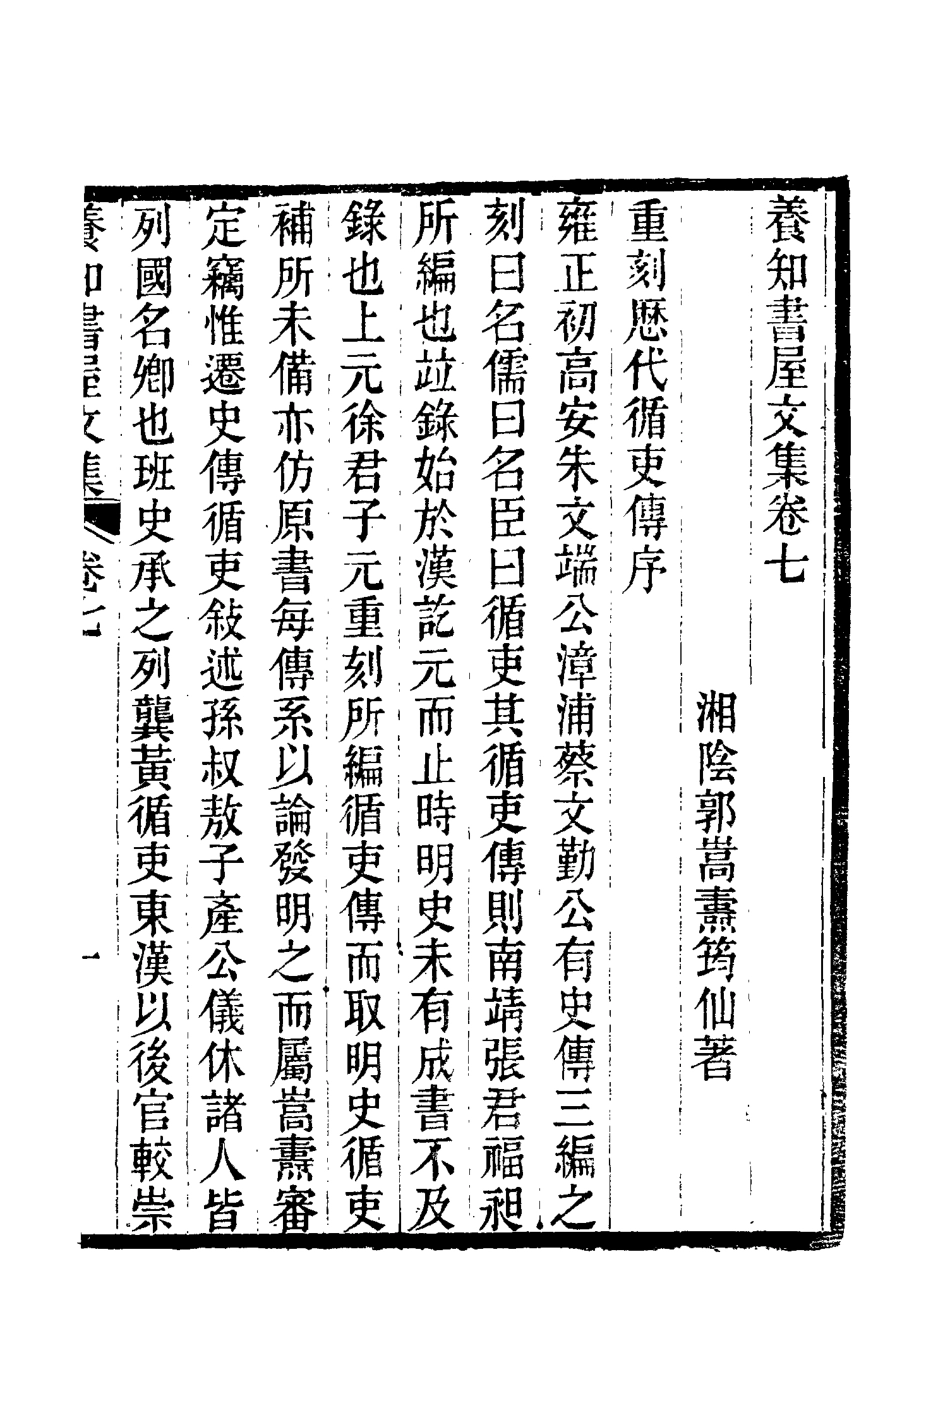 養知書屋文集卷七
湘陰郭嵩燾筠仙著
重刻歷代循吏傳序
雍正初高安朱文端公漳浦蔡文勤公有史傳三編之
刻曰名儒曰名臣曰循吏其循吏傳則南靖張君福昶
所編也竝錄始於漢訖元而止時明史未有成書不及
錄也上元徐君子元重刻所編循吏傳而取明史循吏
補所未備亦仿原書每傳系以論發明之而屬嵩燾審
定竊惟遷史傳循吏敍述孫叔敖子產公儀休諸人皆
列國名卿也班史承之列龔黃循吏東漢以後官較崇
養知書屋文集 卷七 一